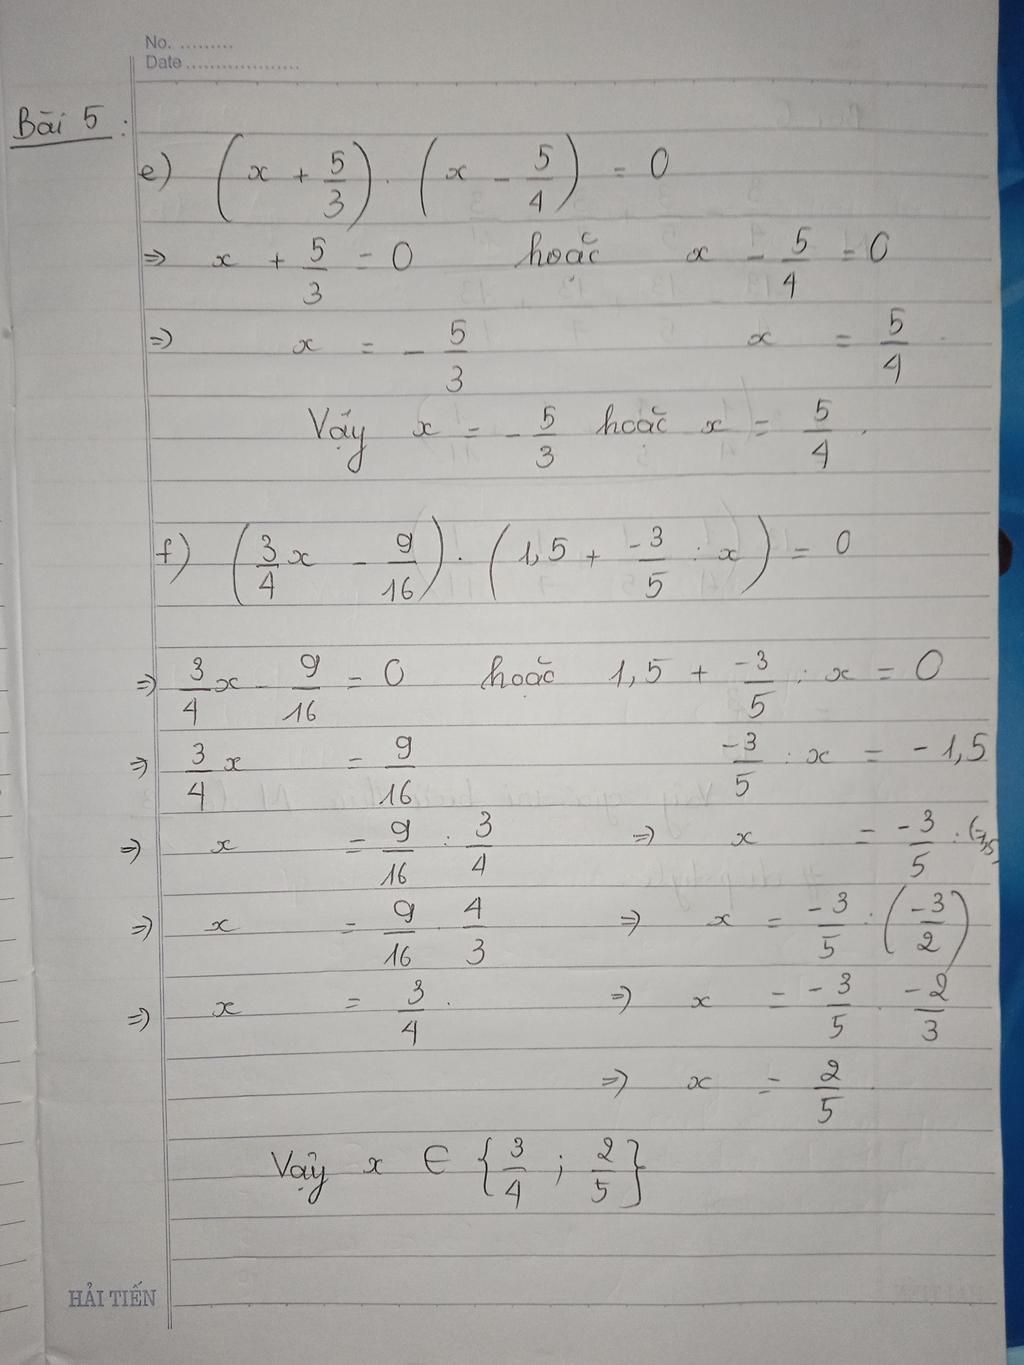 No. .........
Date ...................
Bài 5 :
e) (x + 5/3) . (x - 5/4) = 0
=> x + 5/3 = 0 hoặc x - 5/4 = 0
=> x = - 5/3 x = 5/4
Vậy x = - 5/3 hoặc x = 5/4 .
f) (3/4 x - 9/16) . (1,5 + -3/5 : x) = 0
=> 3/4 x - 9/16 = 0 hoặc 1,5 + -3/5 : x = 0
=> 3/4 x = 9/16 -3/5 : x = - 1,5
=> x = 9/16 : 3/4 => x = -3/5 : (-1,5)
=> x = 9/16 . 4/3 => x = -3/5 : (-3/2)
=> x = 3/4 . => x = -3/5 . -2/3
=> x = 2/5
Vậy x ∈ {3/4 ; 2/5}
HẢI TIẾN